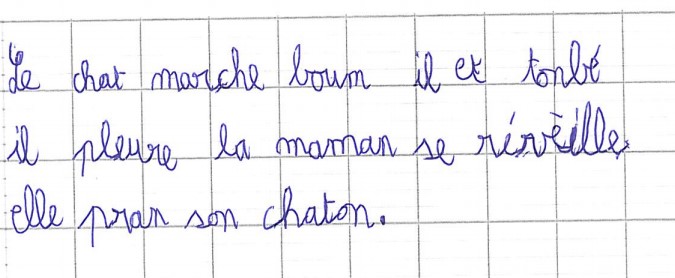 Le chat marche boum il et tonbé
il pleure la maman se rérvèille
elle pran son chaton.